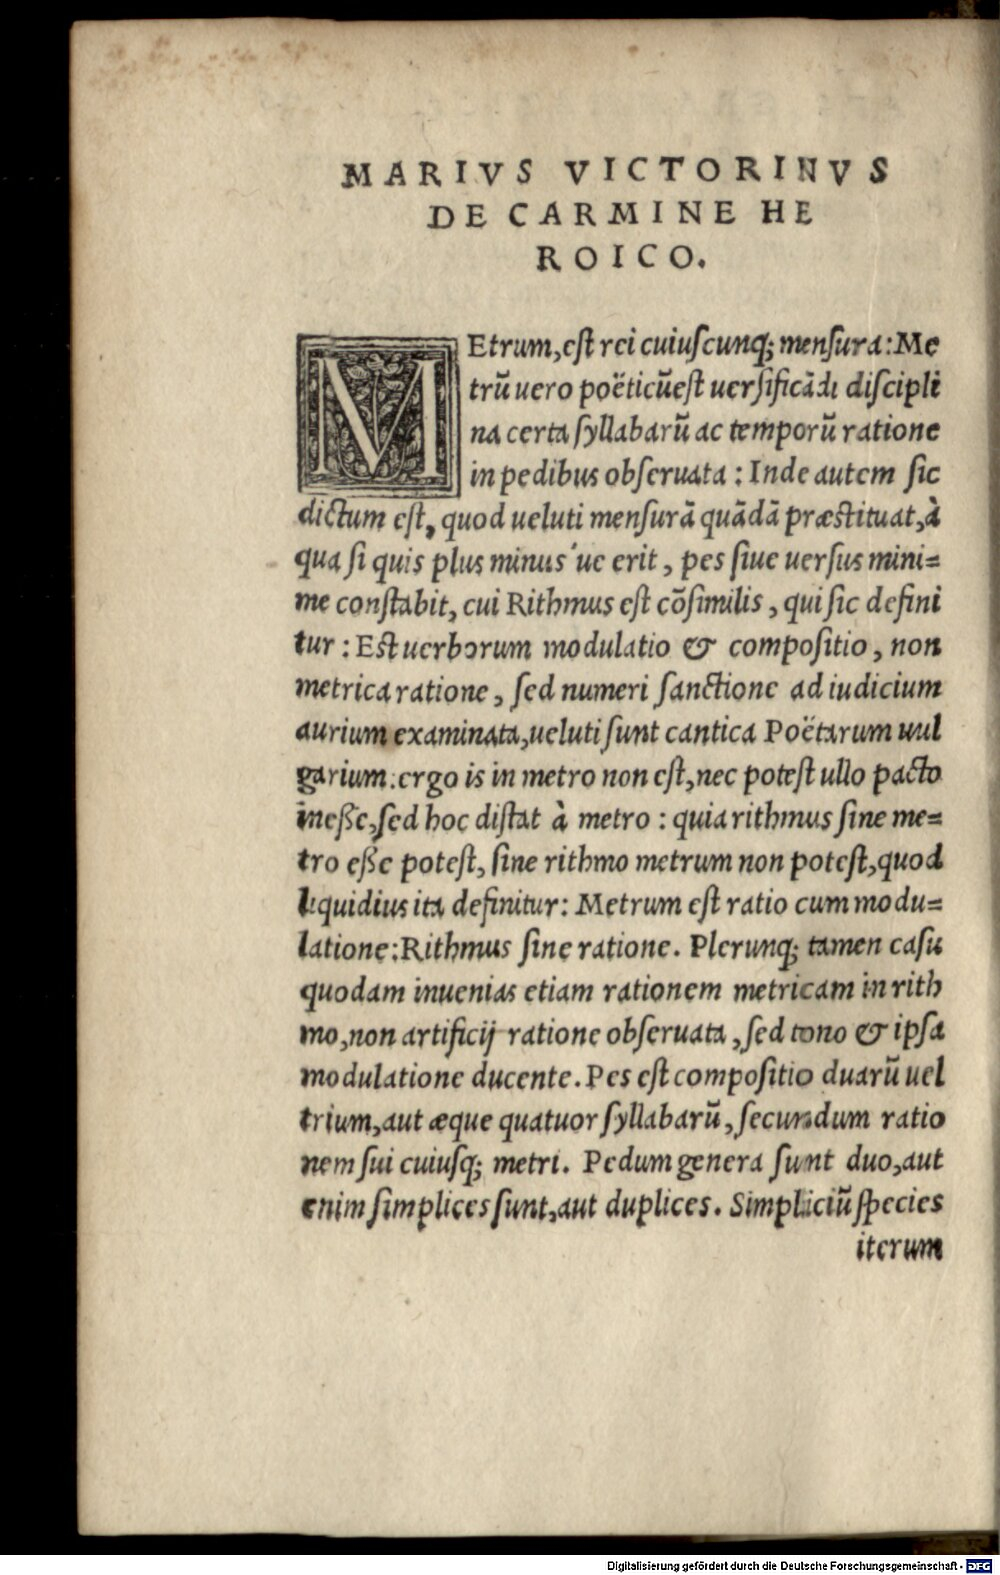 MARIVS VICTORINVS
DE CARMINE HE
ROICO.
MEtrum, est rei cuiuscunq; mensura: Me
trũ uero poëticũ est uersificãdi discipli
na certa syllabarũ ac temporũ ratione
in pedibus obseruata: Inde autem sic
dictum est, quod ueluti mensurã quãdã præstituat, à
qua si quis plus minus´ue erit, pes siue uersus mini=
me constabit, cui Rithmus est cõsimilis, qui sic defini
tur: Est uerborum modulatio & compositio, non
metrica ratione, sed numeri sanctione ad iudicium
aurium examinata, ueluti sunt cantica Poëtarum uul
garium: ergo is in metro non est, nec potest ullo pacto
ineße, sed hoc distat à metro: quia rithmus sine me=
tro eße potest, sine rithmo metrum non potest, quod
liquidius ita definitur: Metrum est ratio cum modu=
latione: Rithmus sine ratione. Plerunq; tamen casu
quodam inuenias etiam rationem metricam in rith
mo, non artificij ratione obseruata, sed tono & ipsa
modulatione ducente. Pes est compositio duarũ uel
trium, aut æque quatuor syllabarũ, secundum ratio
nem sui cuiusq; metri. Pedum genera sunt duo, aut
enim simplices sunt, aut duplices. Simpliciũ species
iterum
Digitalisierung gefördert durch die Deutsche Forschungsgemeinschaft - DFG